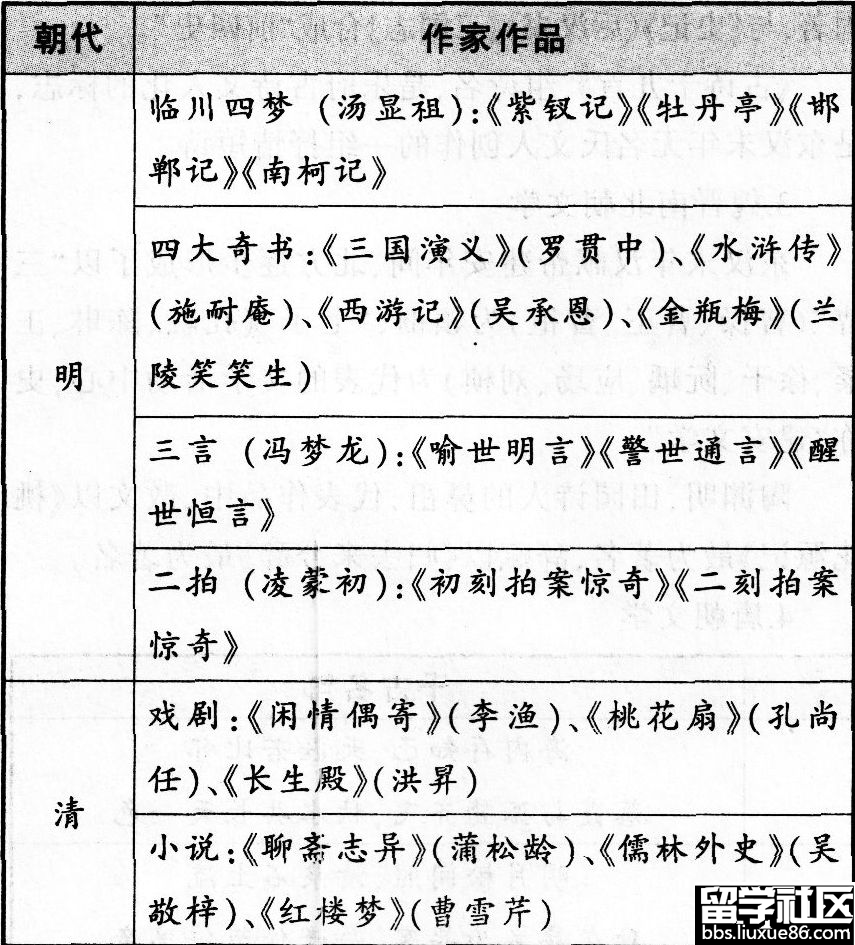 朝代 作家作品
临川四梦 (汤显祖):《紫钗记》《牡丹亭》《邯
郸记》《南柯记》
四大奇书:《三国演义》(罗贯中)、《水浒传》
(施耐庵)、《西游记》(吴承恩)、《金瓶梅》(兰
陵笑笑生)
明
三言 (冯梦龙):《喻世明言》《警世通言》《醒
世恒言》
二拍 (凌蒙初):《初刻拍案惊奇》《二刻拍案
惊奇》
戏剧:《闲情偶寄》(李渔)、《桃花扇》(孔尚
任)、《长生殿》(洪昇)
清
小说:《聊斋志异》(蒲松龄)、《儒林外史》(吴
敬梓)、《红楼梦》(曹雪芹)
留学社区
bbs.liuxue86.com